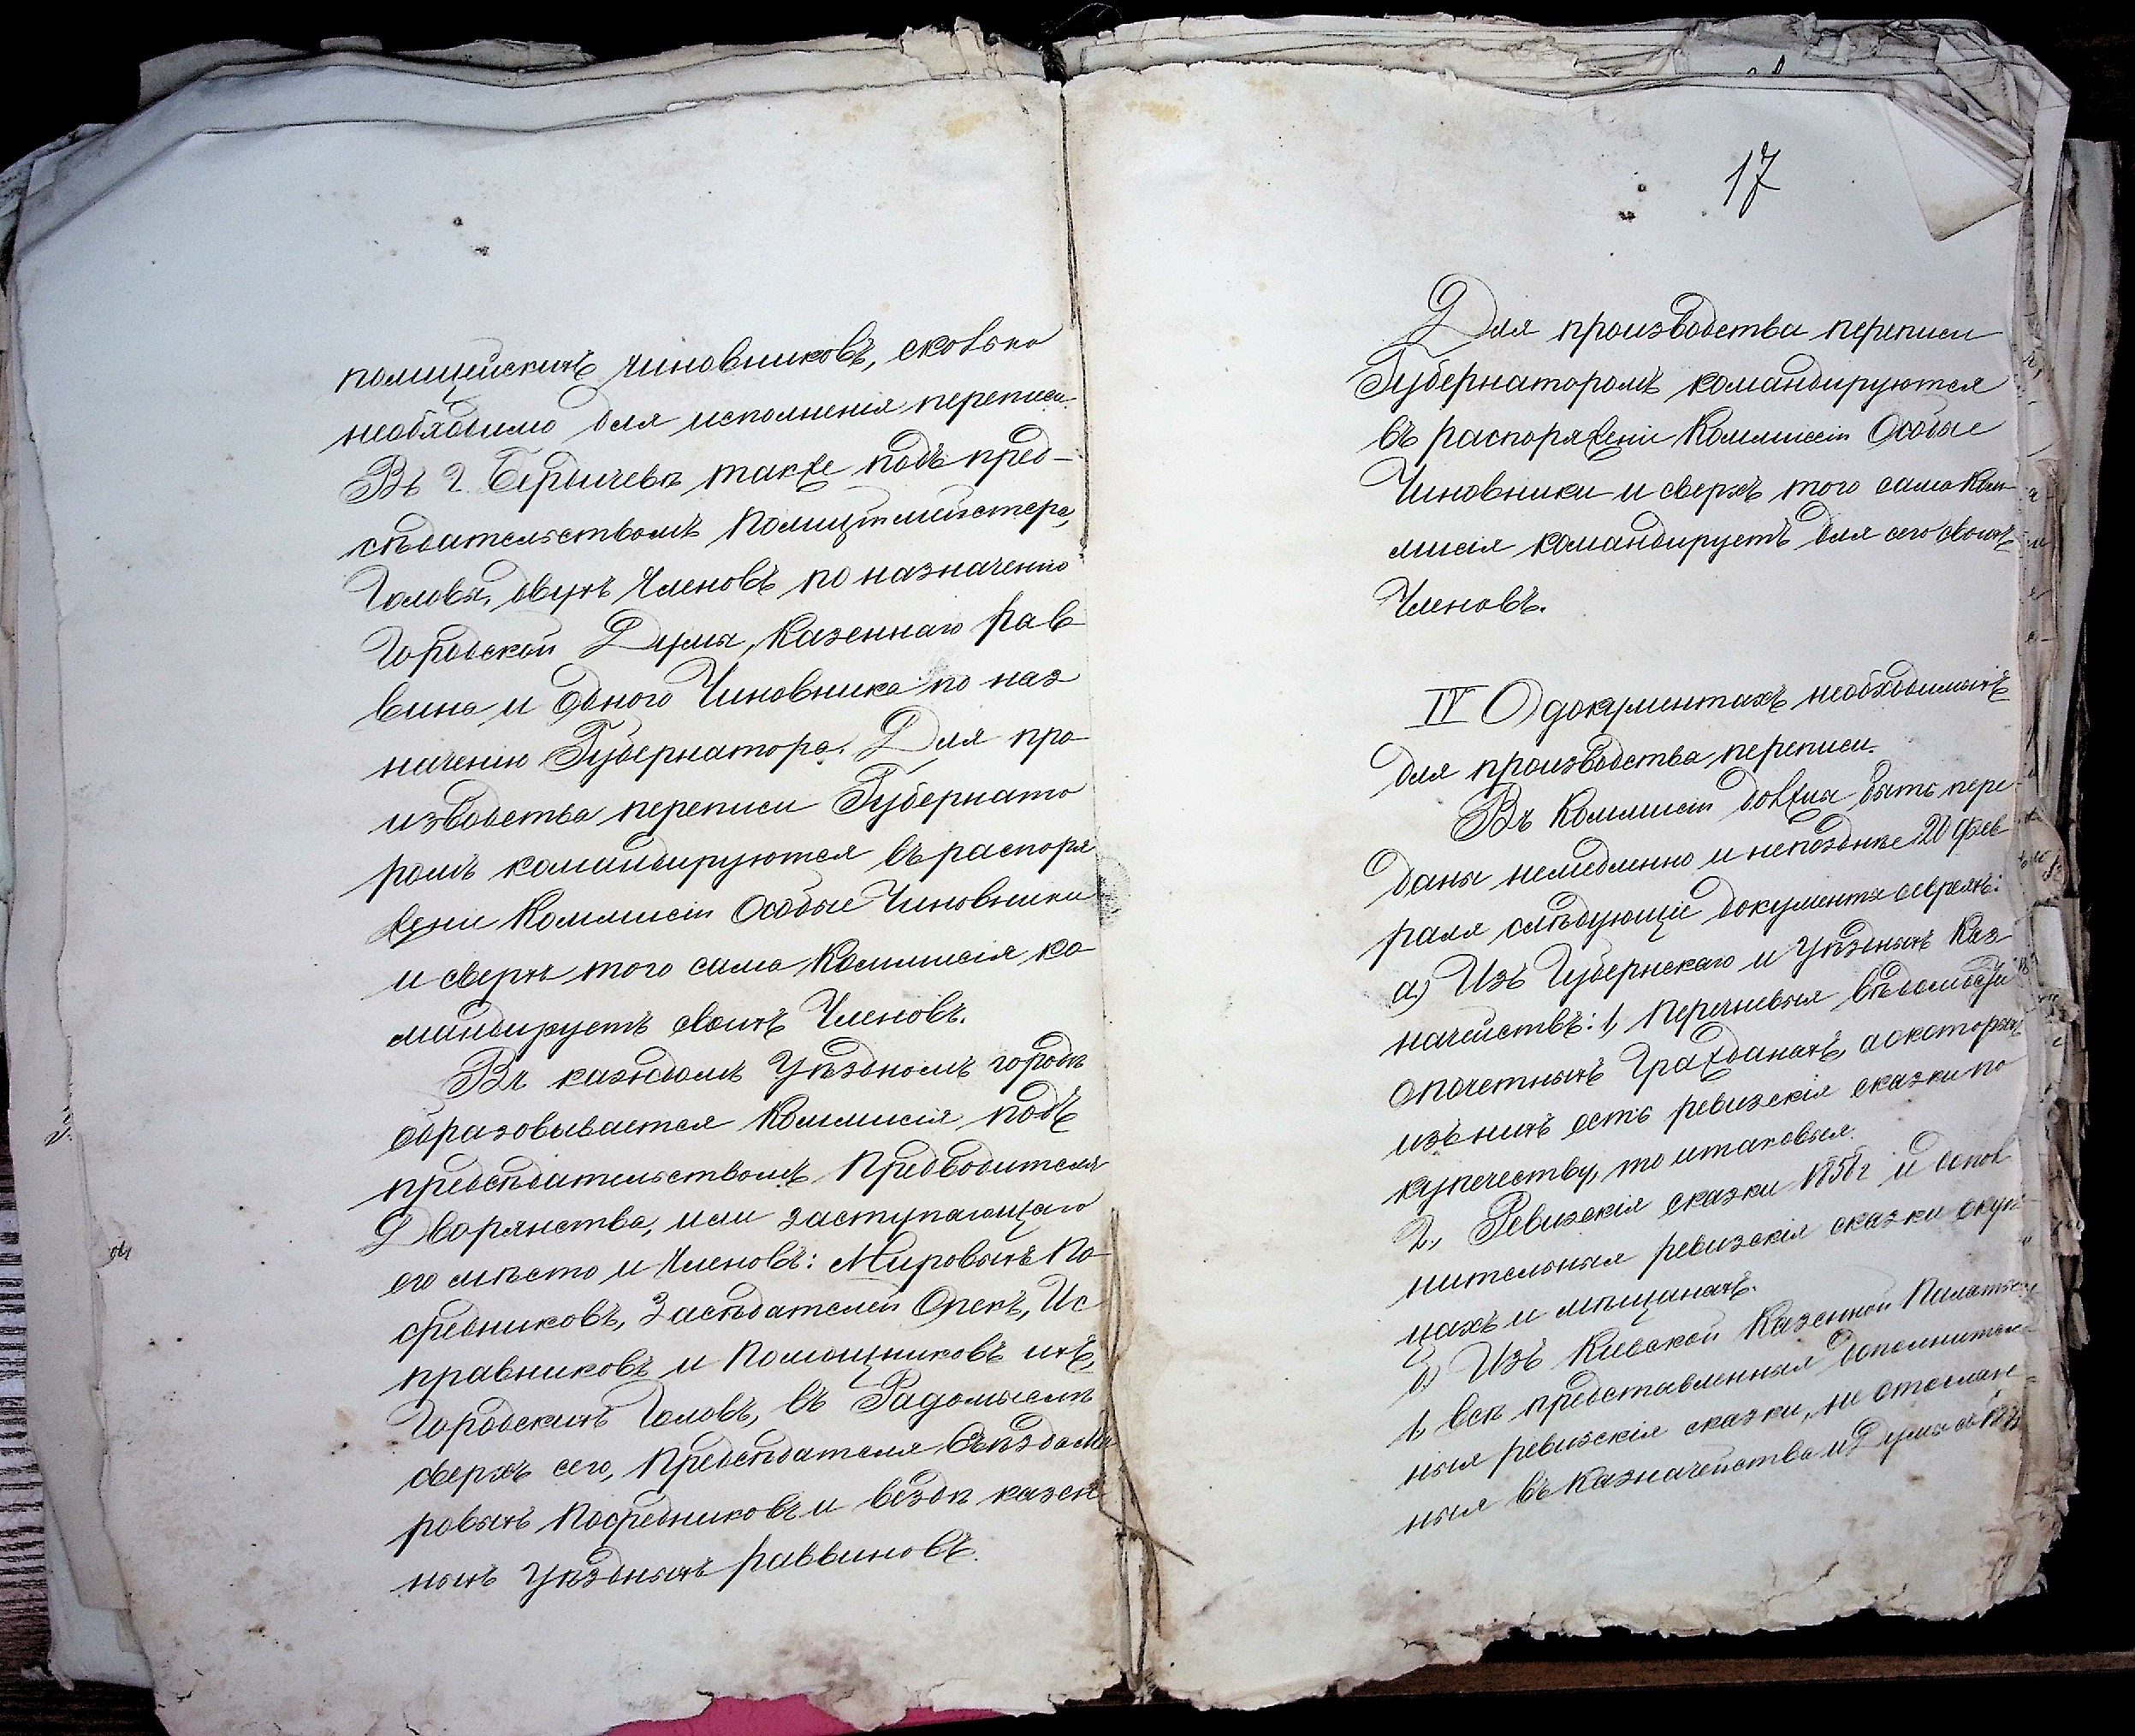 полицейскихъ чиновниковъ, сколько
необходимо для исполненія переписи.
Въ г. Бердичевѣ также подъ пред-
сѣдательствомъ Полицiймейстера,
Головы, двухъ Членовъ по назначенію
Городской Думы, Казеннаго рав
вина и одного Чиновника по наз
наченію Губернатора. Для про
изводства переписи Губернато
ромъ командируются въ распоря
женіе Коммисіи Особые Чиновники
и сверхъ того сама Коммисія ко
мандируетъ своихъ Членовъ.
Въ каждомъ Уѣздномъ городѣ
образовывается Коммисія подъ
предсѣдательствомъ Предводителя
Дворянства, или заступающаго
его мѣсто и Членовъ: Мировыхъ По-
средниковъ, Засѣдателей Опекъ, Ис
правниковъ и Помощниковъ ихъ,
Городскихъ Головъ, въ Радомыслѣ
сверхъ сего, Предсѣдателя Съѣзда Ми
ровыхъ Посредниковъ и вездѣ казен
ныхъ Уѣздныхъ раввиновъ.
17
Для производства переписи
Губернаторомъ командируются
въ распоряженіе Коммисіи Особые
Чиновники и сверхъ того сама Ком-
мисія командируетъ для сего своихъ
Членовъ.
IV О документахъ необходимыхъ
для производства переписи.
Въ Коммисіи должны быть пере-
даны немедленно и непозднѣе 20 Фев
раля слѣдующіе документы о евреяхъ:
а) Изъ Губернскаго и Уѣздныхъ Каз-
начействъ: 1, Перечневыя вѣдомости
опочетныхъ Гражданахъ, а о которыхъ
изъ нихъ есть ревизскія сказки по
купечеству, то и таковыя.
2, Ревизскія сказки 1858 г и допол
нительныя ревизскія сказки о куп-
цахъ и мѣщанахъ.
б) Изъ Кіевской Казенной Палаты:
1, всѣ представленныя дополнитель-
ныя ревизскія сказки, не отослан-
ныя въ Казначейства и Думы съ